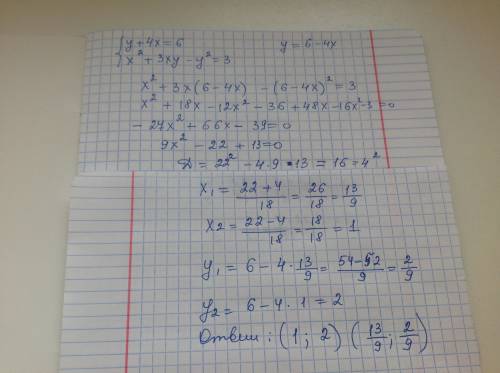 { y + 4x = 6        y = 6 – 4x
{ x² + 3xy – y² = 3
x² + 3x(6 – 4x) – (6 – 4x)² = 3
x² + 18x – 12x² – 36 + 48x – 16x² – 3 = 0
– 27x² + 66x – 39 = 0
9x² – 22 + 13 = 0
D = 22² – 4 · 9 · 13 = 16 = 4²
x₁ = (22 + 4)/18 = 26/18 = 13/9
x2 = (22 – 4)/18 = 18/18 = 1
y₁ = 6 – 4 · 13/9 = (54 – 52)/9 = 2/9
y₂ = 6 – 4 · 1 = 2
Ответ: (1; 2) (13/9; 2/9)